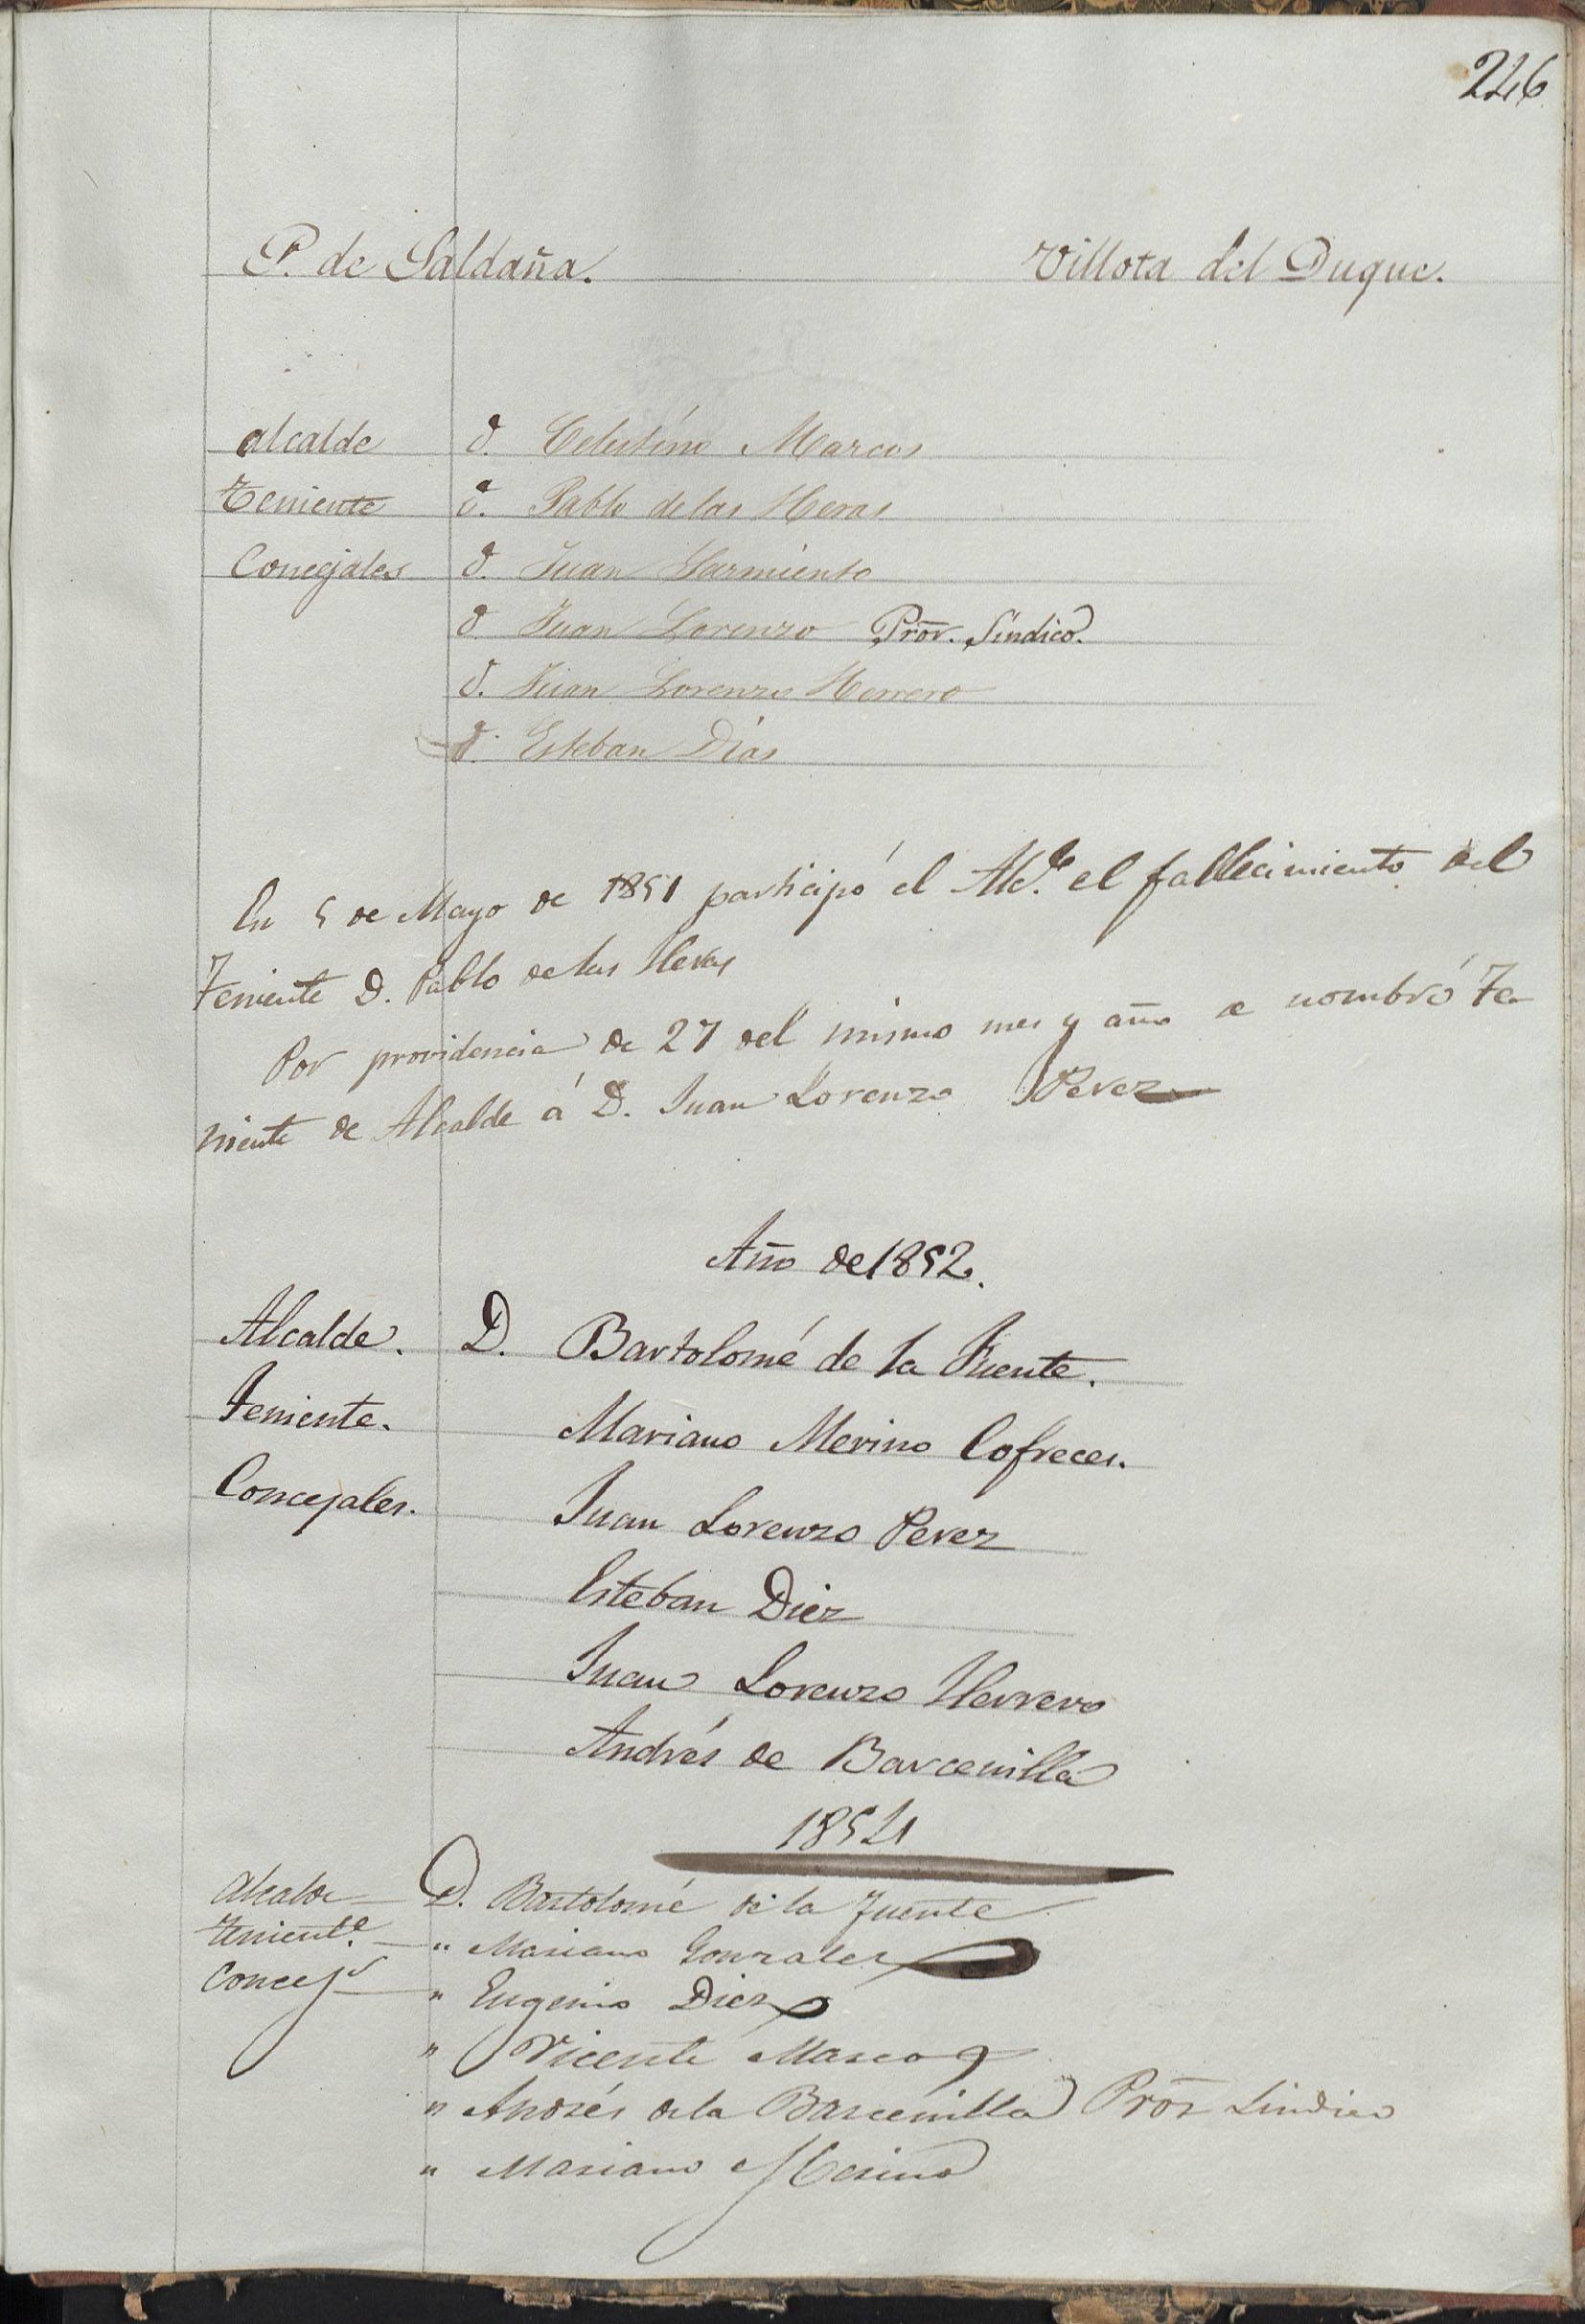 246
P. de Saldaña. Villota del Duque.
alcalde D. Celestino Marcos
Teniente D. Pablo de las Heras
Concejales D. Juan Sarmiento
D. Juan Lorenzo Prõr. Síndico.
D. Juan Lorenzo Herrero
D. Esteban Días
En 5 de Mayo de 1851 participó el Alc.e el fallecimiento del
Teniente D. Pablo de las Heras
Por providencia de 27 del mismo mes y año se nombró Te-
niente de Alcalde á D. Juan Lorenzo Perez
Año de 1852.
Alcalde. D. Bartolomé de la Fuente.
Teniente. Mariano Merino Cofreces.
Concejales. Juan Lorenzo Perez
Esteban Diez
Juan Lorenzo Herrero
Andrés de Barcenilla
1854
Alcalde D. Bartolomé de la Fuente
Tenient.e " Mariano Gonzalez
Concejs " Eugenio Diez
" Vicente Marcos
" Andrés de la Barcenilla Prõr Sindico
" Mariano Merino